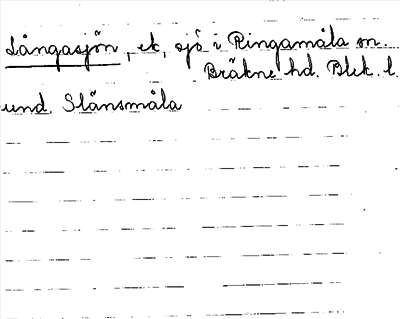 Långasjön, ek, sjö i Ringamåla sn.
Bräkne hd. Blek. l.
und. Slänsmåla